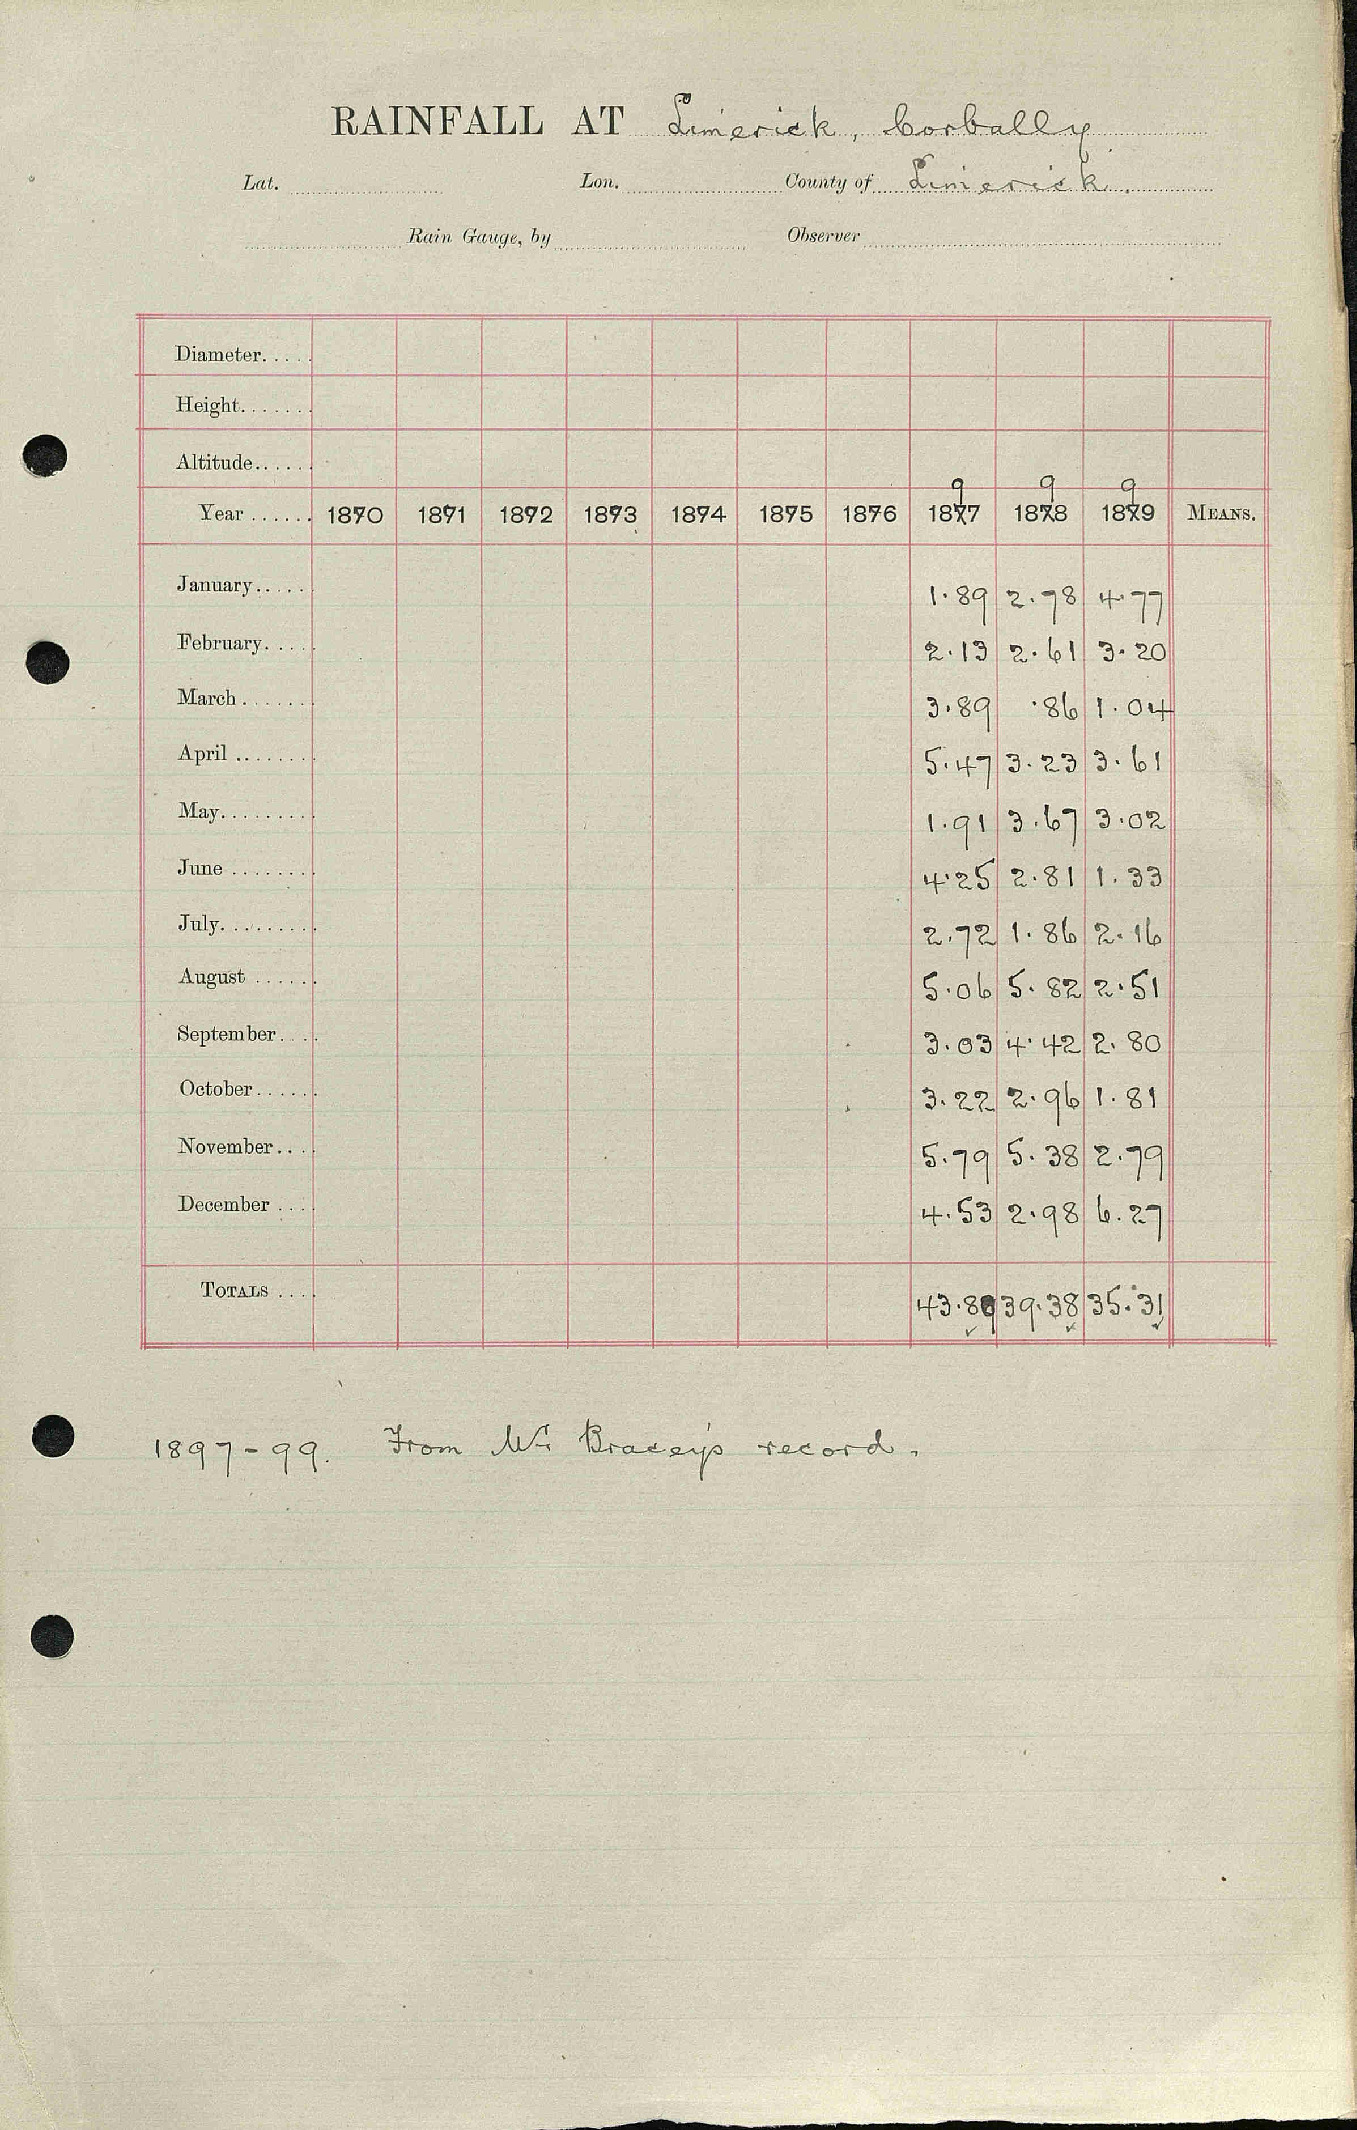 RAINFALL AT Limerick, Corbally
Lat. Lon. County of Limerick.
Rain Gauge, by Observer
Diameter.....
Height.......
Altitude......
9 9 9
Year ...... 1870 1871 1872 1873 1874 1875 1876 1877 1878 1879 MEANS.
January..... 1.89 2.78 4.77
February..... 2.13 2.61 3.20
March ....... 3.89 .86 1.04
April ........ 5.47 3.23 3.61
May......... 1.91 3.67 3.02
June ........ 4.25 2.81 1.33
July......... 2.72 1.86 2.16
August ...... 5.06 5.82 2.51
September.... 3.03 4.42 2.80
October...... 3.22 2.96 1.81
November.... 5.79 5.38 2.79
December .... 4.53 2.98 6.27
TOTALS .... 43.89 39.38 35.31
1897-99. From Mr Bracey's record.